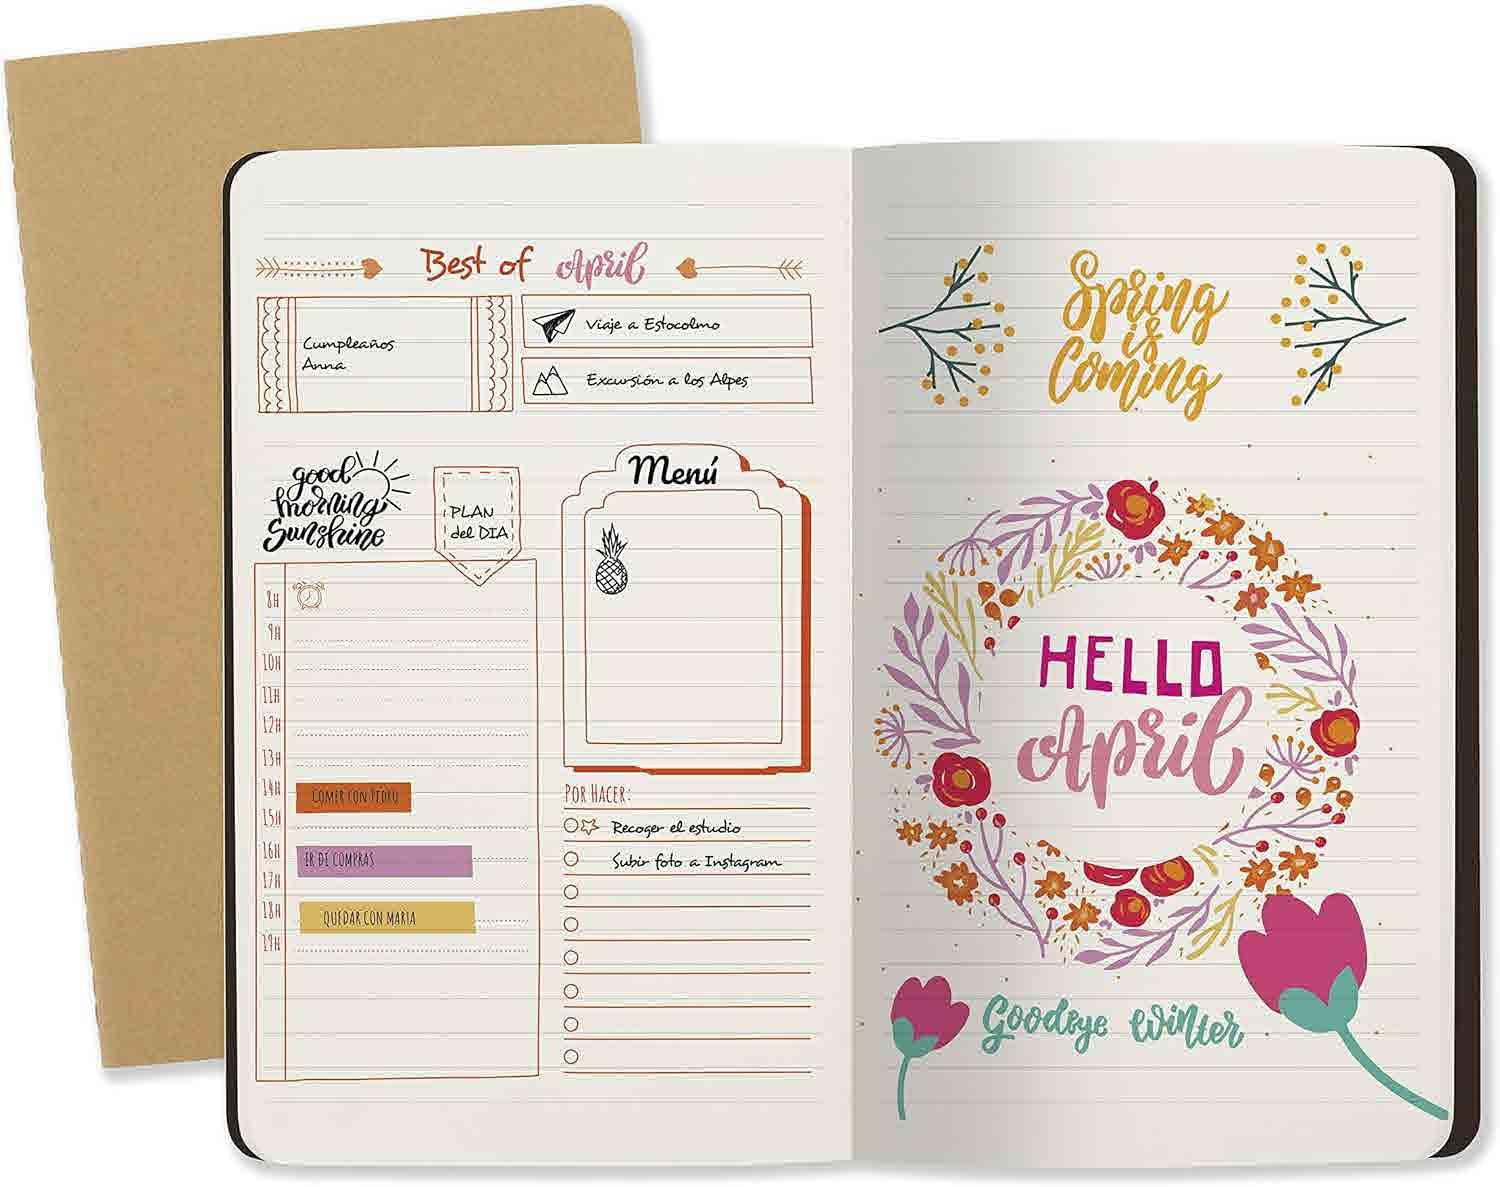 Best of April
Cumpleaños
Anna
Viaje a Estocolmo
Excursión a los Alpes
good
morning
Sunshine
PLAN
del DIA
8H
9H
10H
11H
12H
13H
14H
COMER CON PEDRO
15H
16H
IR DE COMPRAS
17H
18H
QUEDAR CON MARIA
19H
Menú
POR HACER:
Recoger el estudio
Subir foto a Instagram
Spring
is
Coming
HELLO
April
Goodbye Winter